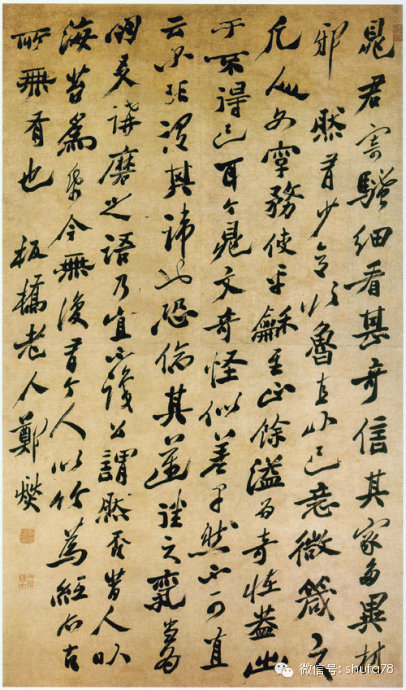 晁君寄騷細看甚奇信其家多異材
邪然有少意欲魯直以己意微箴之
凡人文字務使平龢至足餘溢為奇怪蓋出
于不得已耳今晁文奇怪似差早然不可直
云爾非謂其諱也恐傷其邁往之氣當為
朋友講磨之語乃宜不識公謂然否昔人以
海苔為紙今無復有今人以竹為紙亦古
所無有也 板橋老人鄭燮
微信号: shufa78